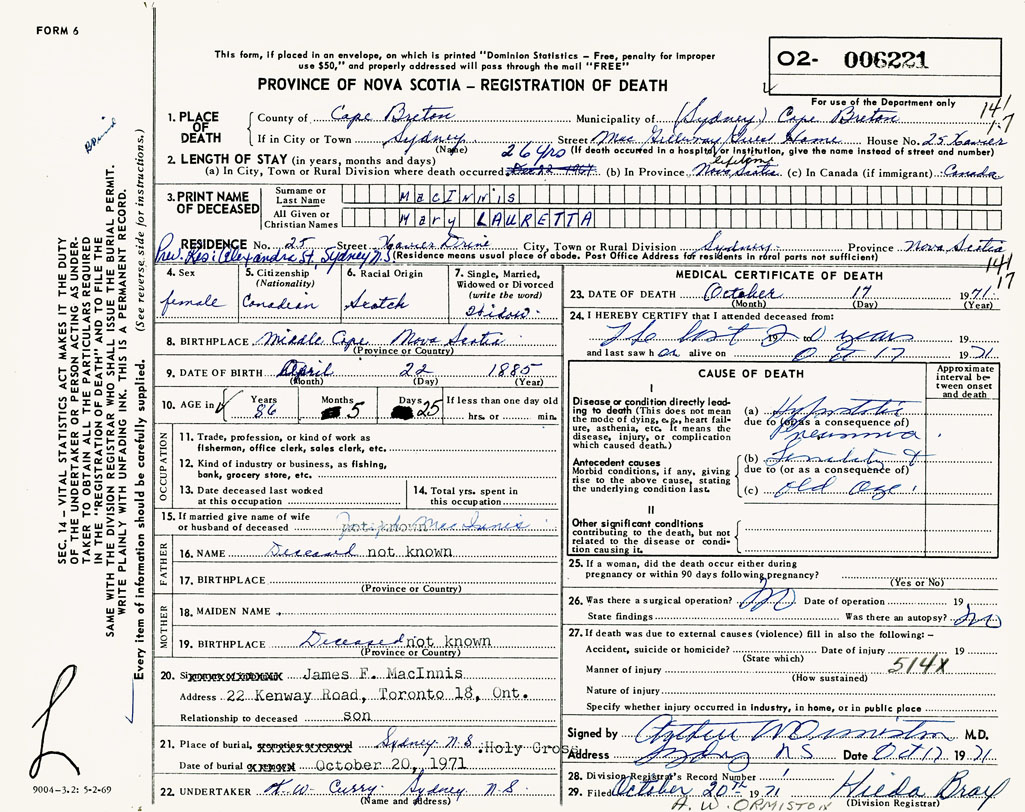 FORM 6
This form, if placed in an envelope, on which is printed "Dominion Statistics – Free, penalty for improper
use $50," and properly addressed will pass through the mail "FREE"
PROVINCE OF NOVA SCOTIA – REGISTRATION OF DEATH
O2- 006221
For use of the Department only
1. PLACE OF DEATH
County of Cape Breton Municipality of (Sydney) Cape Breton
If in City or Town Sydney Street Guest Home House No. 25 Xavier
(Name) (If death occurred in a hospital or institution, give the name instead of street and number)
2. LENGTH OF STAY (in years, months and days) 26 yrs
(a) In City, Town or Rural Division where death occurred (b) In Province lifetime Nova Scotia (c) In Canada (if immigrant) Canada
3. PRINT NAME OF DECEASED
Surname or Last Name MacINNIS
All Given or Christian Names Mary LAURETTA
RESIDENCE No. 25 Street Xavier Drive City, Town or Rural Division Sydney Province Nova Scotia
Prev. Res: Alexandra St, Sydney N.S. (Residence means usual place of abode. Post Office Address for residents in rural parts not sufficient)
141
17
4. Sex
female
5. Citizenship (Nationality)
Canadian
6. Racial Origin
Scotch
7. Single, Married, Widowed or Divorced (write the word)
Widow
8. BIRTHPLACE Middle Cape Nova Scotia
(Province or Country)
9. DATE OF BIRTH April 22 1885
(Month) (Day) (Year)
10. AGE in Years 86 Months 5 Days 25 If less than one day old
hrs. or min.
OCCUPATION
11. Trade, profession, or kind of work as fisherman, office clerk, sales clerk, etc.
12. Kind of industry or business, as fishing, bank, grocery store, etc.
13. Date deceased last worked at this occupation
14. Total yrs. spent in this occupation
15. If married give name of wife or husband of deceased not known MacInnis
FATHER
16. NAME Deceased not known
17. BIRTHPLACE
(Province or Country)
MOTHER
18. MAIDEN NAME
19. BIRTHPLACE Deceased not known
(Province or Country)
20. James F. MacInnis
Address 22 Kenway Road, Toronto 18, Ont.
Relationship to deceased son
21. Place of burial, Sydney N.S. Holy Cross
Date of burial October 20, 1971
22. UNDERTAKER H. W. Curry Sydney N.S.
(Name and address)
MEDICAL CERTIFICATE OF DEATH
23. DATE OF DEATH October 17 1971
(Month) (Day) (Year)
24. I HEREBY CERTIFY that I attended deceased from:
The last 20 years 19 to 19
and last saw her alive on Oct 17 1971
CAUSE OF DEATH
Approximate interval between onset and death
I
Disease or condition directly leading to death (This does not mean the mode of dying, e.g., heart failure, asthenia, etc. It means the disease, injury, or complication which caused death.)
(a) Hypostatic
due to (or as a consequence of)
Pneumonia
Antecedent causes
Morbid conditions, if any, giving rise to the above cause, stating the underlying condition last.
(b) Senility &
due to (or as a consequence of)
(c) old age.
II
Other significant conditions
contributing to the death, but not related to the disease or condition causing it.
25. If a woman, did the death occur either during pregnancy or within 90 days following pregnancy?
(Yes or No)
26. Was there a surgical operation? No Date of operation 19
State findings Was there an autopsy? No
27. If death was due to external causes (violence) fill in also the following: –
Accident, suicide or homicide? Date of injury 19
(State which)
Manner of injury 514X
(How sustained)
Nature of injury
Specify whether injury occurred in industry, in home, or in public place
Signed by Arthur W Ormiston M.D.
Address Sydney NS Date Oct 17 1971
28. Division Registrar's Record Number
29. Filed October 20th 1971 Hilda Bray
(Division Registrar)
A. W. ORMISTON
SEC. 14 – VITAL STATISTICS ACT MAKES IT THE DUTY
OF THE UNDERTAKER OR PERSON ACTING AS UNDER-
TAKER TO OBTAIN ALL THE PARTICULARS REQUIRED
IN THE "REGISTRATION OF DEATH" AND TO FILE THE
SAME WITH THE DIVISION REGISTRAR WHO SHALL ISSUE THE BURIAL PERMIT.
WRITE PLAINLY WITH UNFADING INK. THIS IS A PERMANENT RECORD.
Every item of information should be carefully supplied. (See reverse side for instructions.)
9004-3.2: 5-2-69